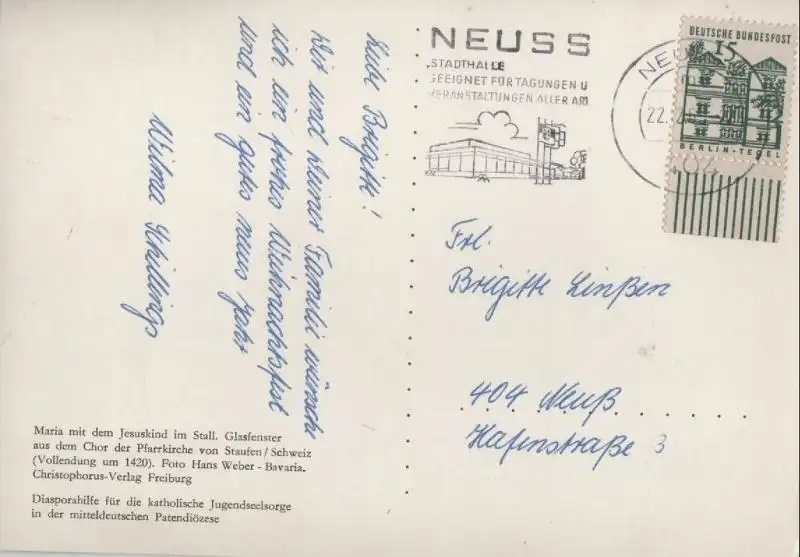 Liebe Brigitt!
Dir und Deiner Familie wünsche
ich ein frohes Weihnachtsfest
und ein gutes neues Jahr
Wilma Schillings
Maria mit dem Jesuskind im Stall. Glasfenster
aus dem Chor der Pfarrkirche von Staufen/Schweiz
(Vollendung um 1420). Foto Hans Weber - Bavaria.
Christophorus-Verlag Freiburg
Diasporahilfe für die katholische Jugendseelsorge
in der mitteldeutschen Patendiözese
NEUSS
STADTHALLE
GEEIGNET FÜR TAGUNGEN U
VERANSTALTUNGEN ALLER ART
NEU
22.12.6
DEUTSCHE BUNDESPOST
15
BERLIN-TEGEL
404
Frl.
Brigitte Linßen
404 Neuß
Hafenstraße 3